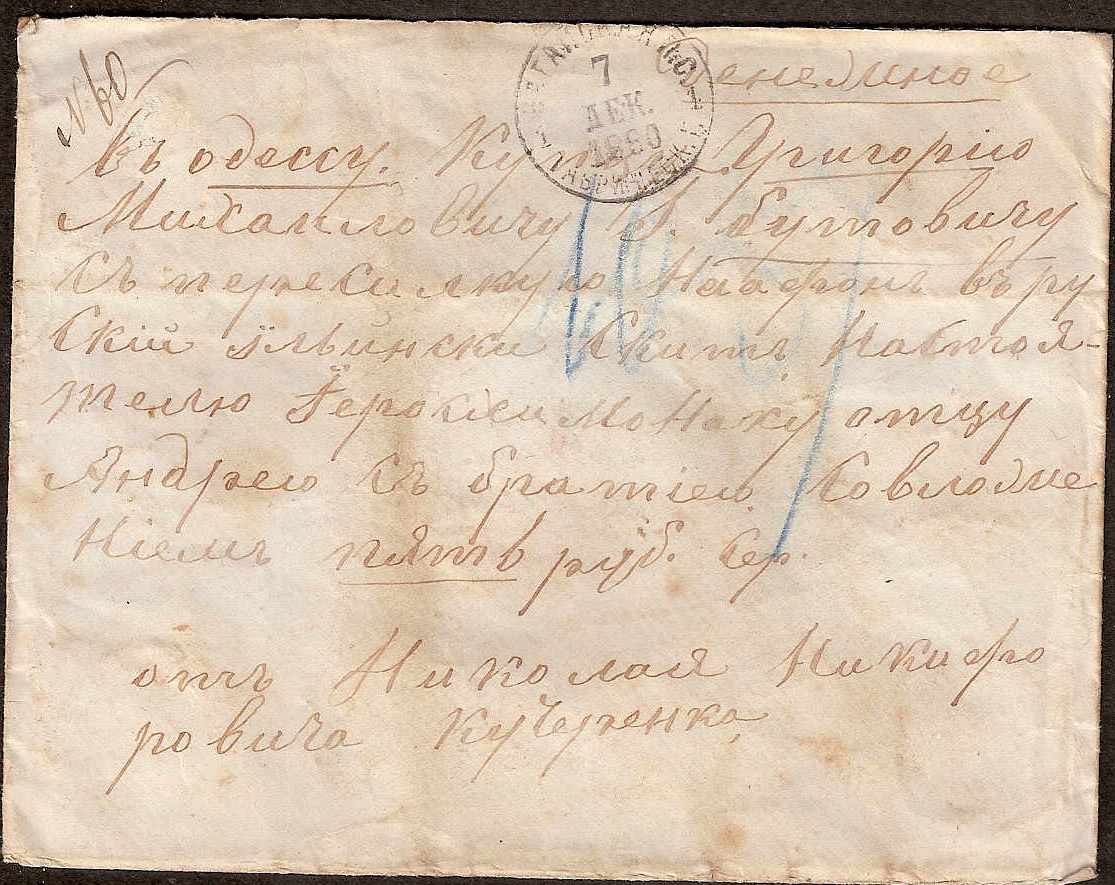 №60
Денежное
7
ДЕК.
1880
въ одессу. Григорію
Михаиловичу Бутовичу
съ пересилкую На афонъ въ ру
скій ильински Скитъ Настоя-
телю Монаху отцу
Андрею съ братіею Совложе
Ніемъ пять руб. Сер.
отъ Николая Никифо
ровича Кучеренка